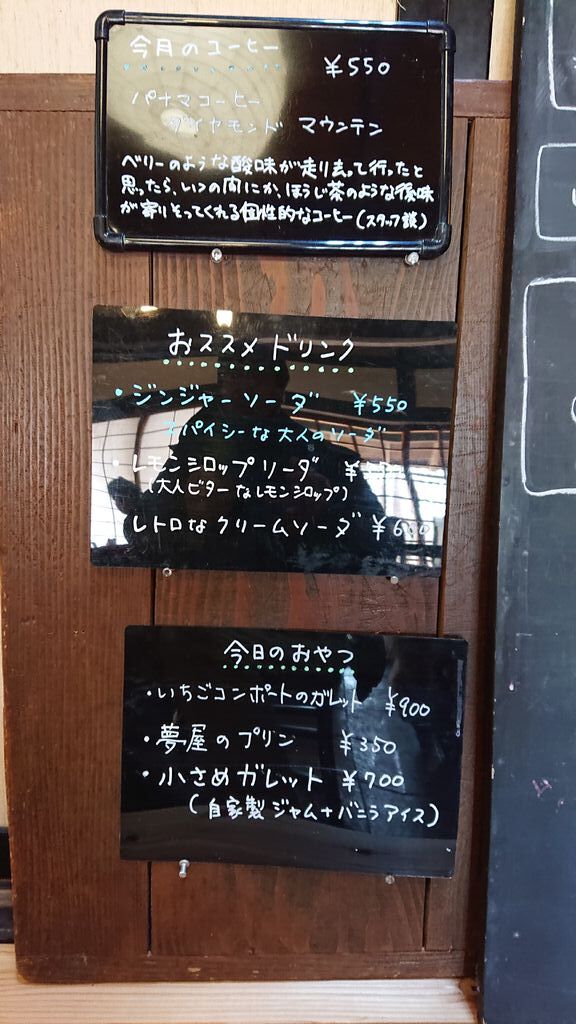 今月のコーヒー
¥550
パナマコーヒー
ダイヤモンド マウンテン
ベリーのような酸味が走り去って行ったと
思ったら、いつの間にか、ほうじ茶のような後味
が寄りそってくれる個性的なコーヒー(スタッフ談)
おススメドリンク
・ジンジャーソーダ ¥550
スパイシーな大人のソーダ
・レモンシロップソーダ
(大人ビターなレモンシロップ)
レトロなクリームソーダ
今日のおやつ
・いちごコンポートのガレット ¥900
・夢屋のプリン ¥350
・小さめガレット ¥700
(自家製ジャム+バニラアイス)